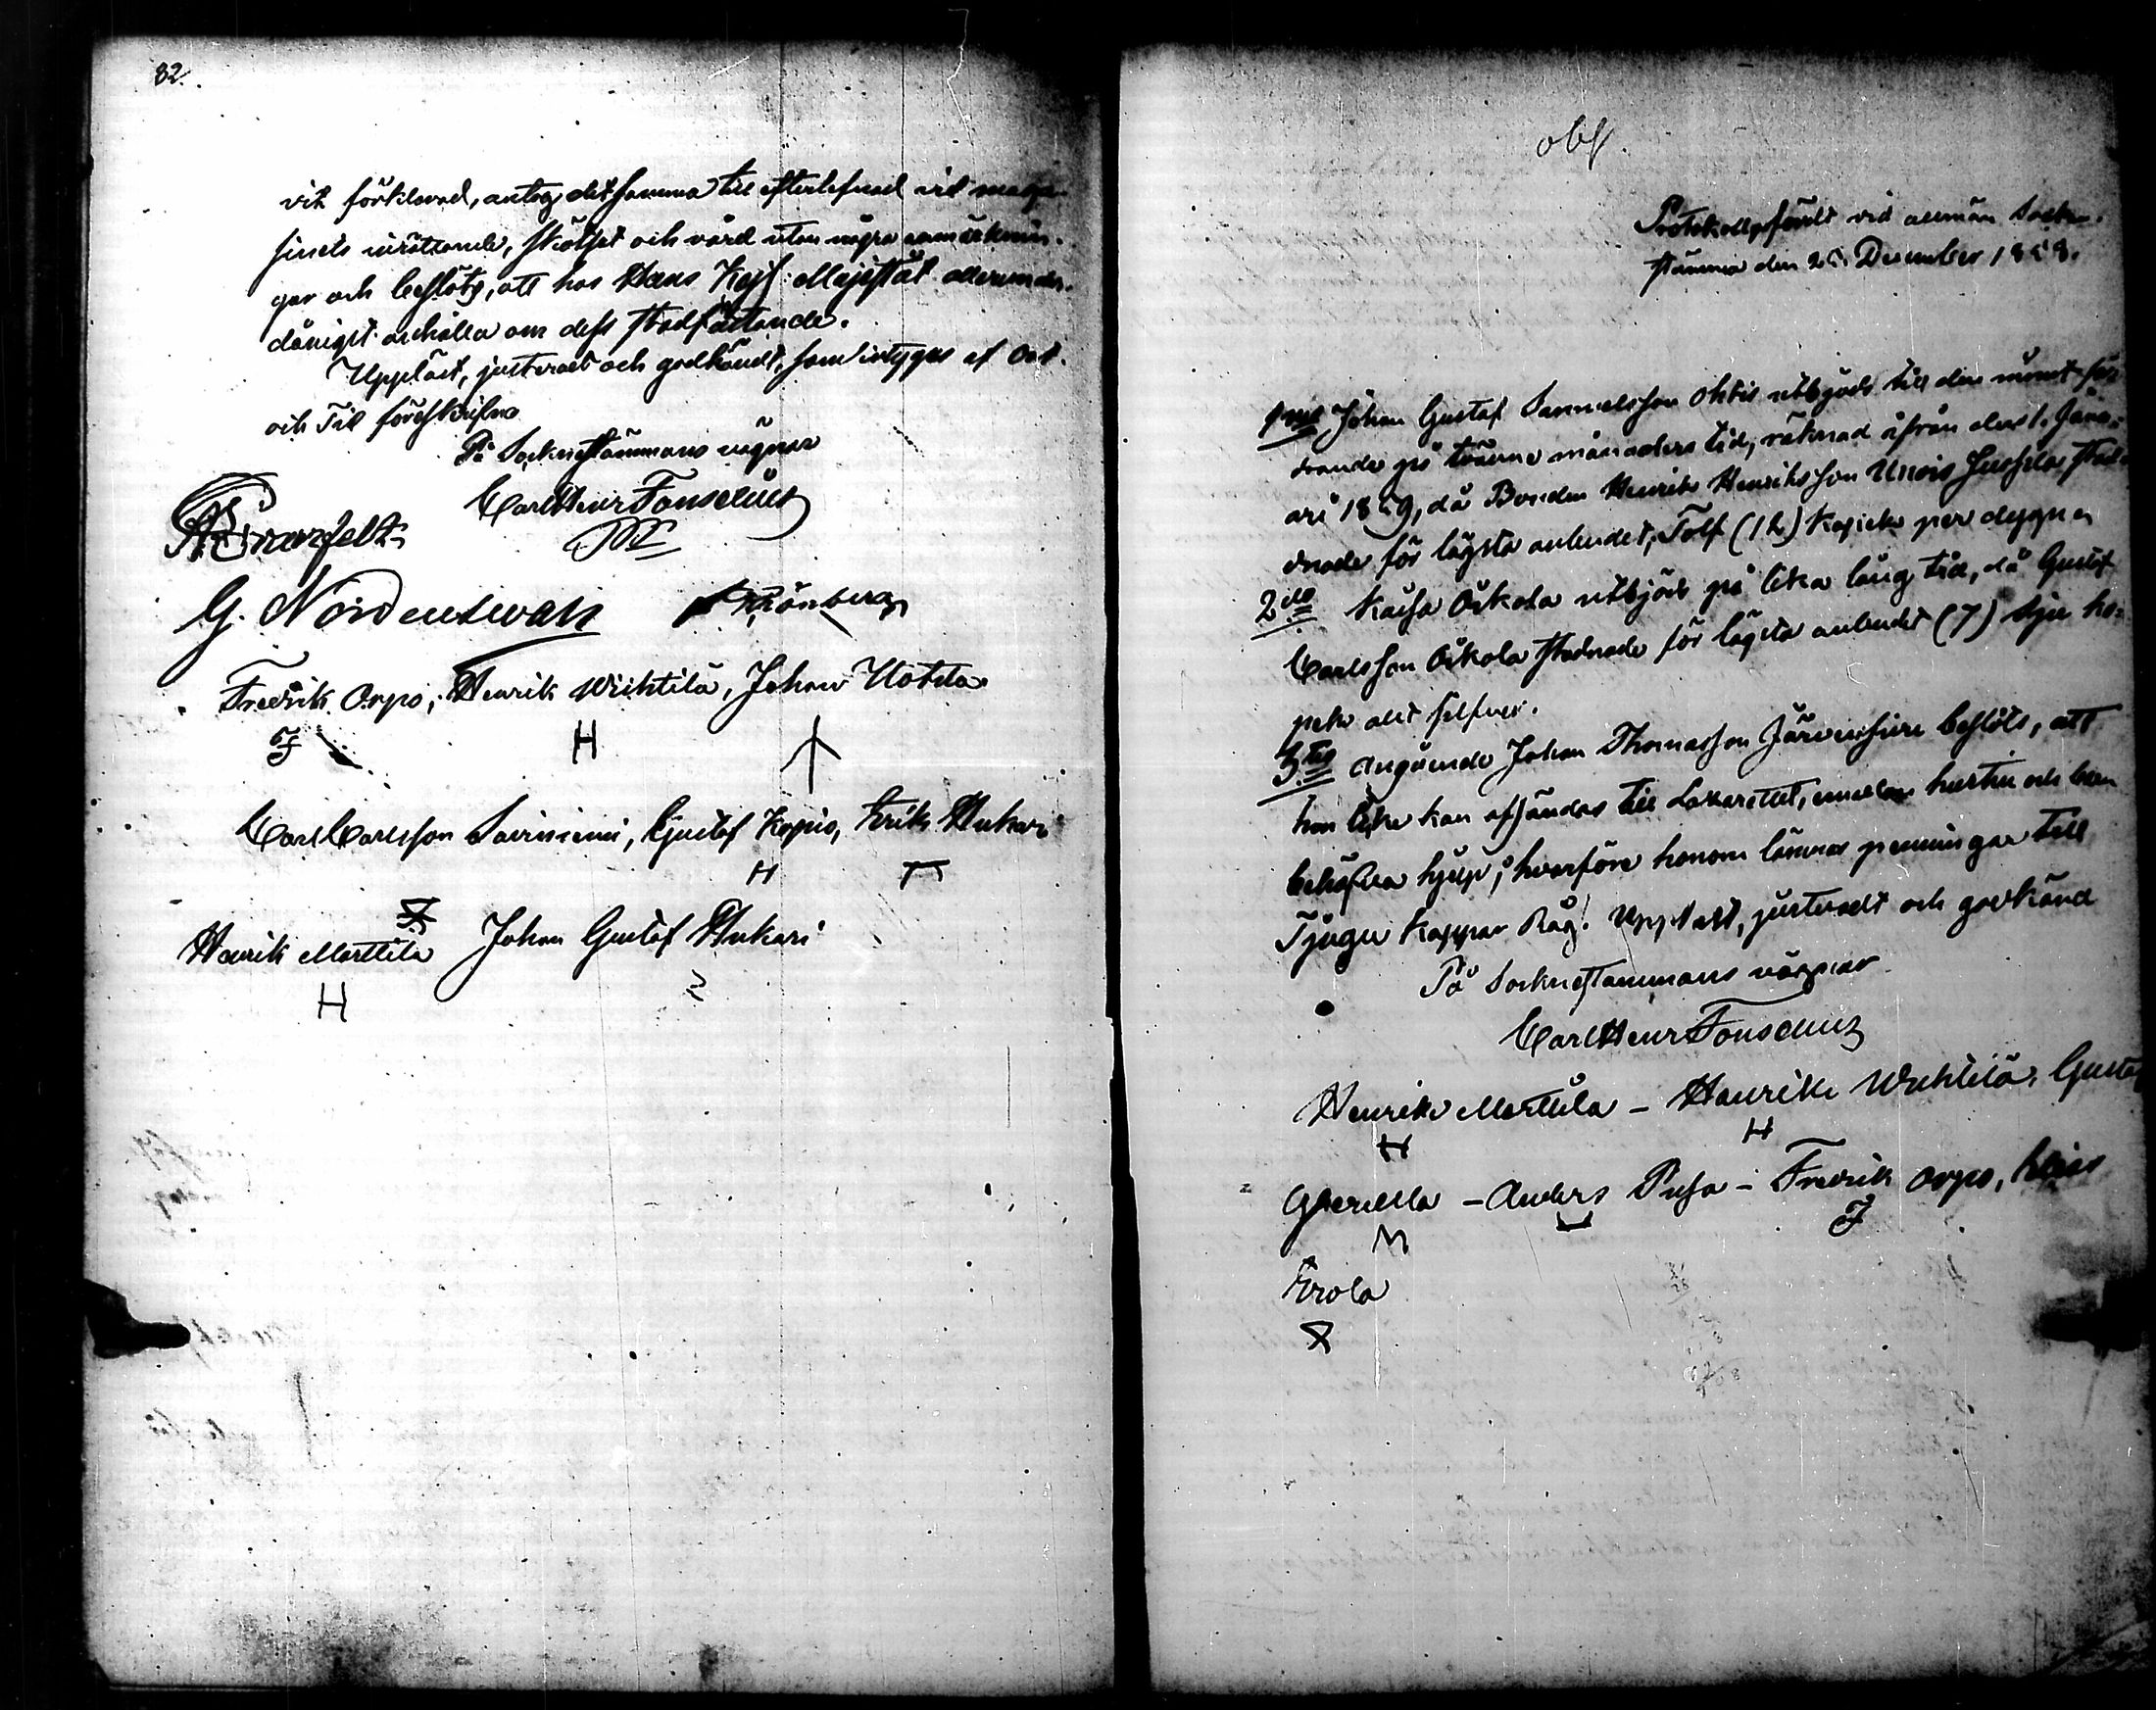 82.
vit förkilarad, antog detsamma till efterlefnad vid maga-
sinets inrättande, skötsel och vård utan några anmärknin-
gar och beslöts, att hos Hans Kejs: Majestät allerunder-
dånigst anhålla om dess stadfästande.
Uppläst, justeradt och godkändt, som intygas af Ort.
och Tid föreskrifne
På Sockenstämmans vägnar
Carl Henr Fonselius
G. Nordenswan
Fredrik Orpo, Henrik Wichtilä, Johan Uotila
H
Carl Carlsson Saviniemi, Gustaf Kopio, Erik Hukari
H
Henrik Marttila Johan Gustaf Hukari
H
Protokollsfördt vid allmän Socken-
stämma den 26 December 1858.
1mo Johan Gustaf Samuelsson Ohtis utbjöds till den minst for-
drande på trenne månaders tid, räknad ifrån den 1. Janu-
ari 1859, då Bonden Henrik Henriksson Unois Jussila stad-
nade för lägsta anbudet, Tolf (12) kopiek per dygn
2do Kaisa Oikola utbjöds på lika lång tid, då Gustaf
Carlsson Oikola stadnade för lägsta anbudet (7) sju ko-
pek
3tio Angående Johan Thomasson Järvensivu beslöts, att
hon icke kan afsändas till Lazarettet, emedan hustru och barn
behöfva hjelp, hvarföre honom lämnas penningar till
Tjugu kappar Råg. Uppläst, justeradt och godkänd
På Sockenstämmans vägnar
Carl Henr Fonselius
Henrik Marttila – Henrik Wichtilä, Gustaf
H H
– Anders Pusa – Fredrik Orpo, Elias
Erola